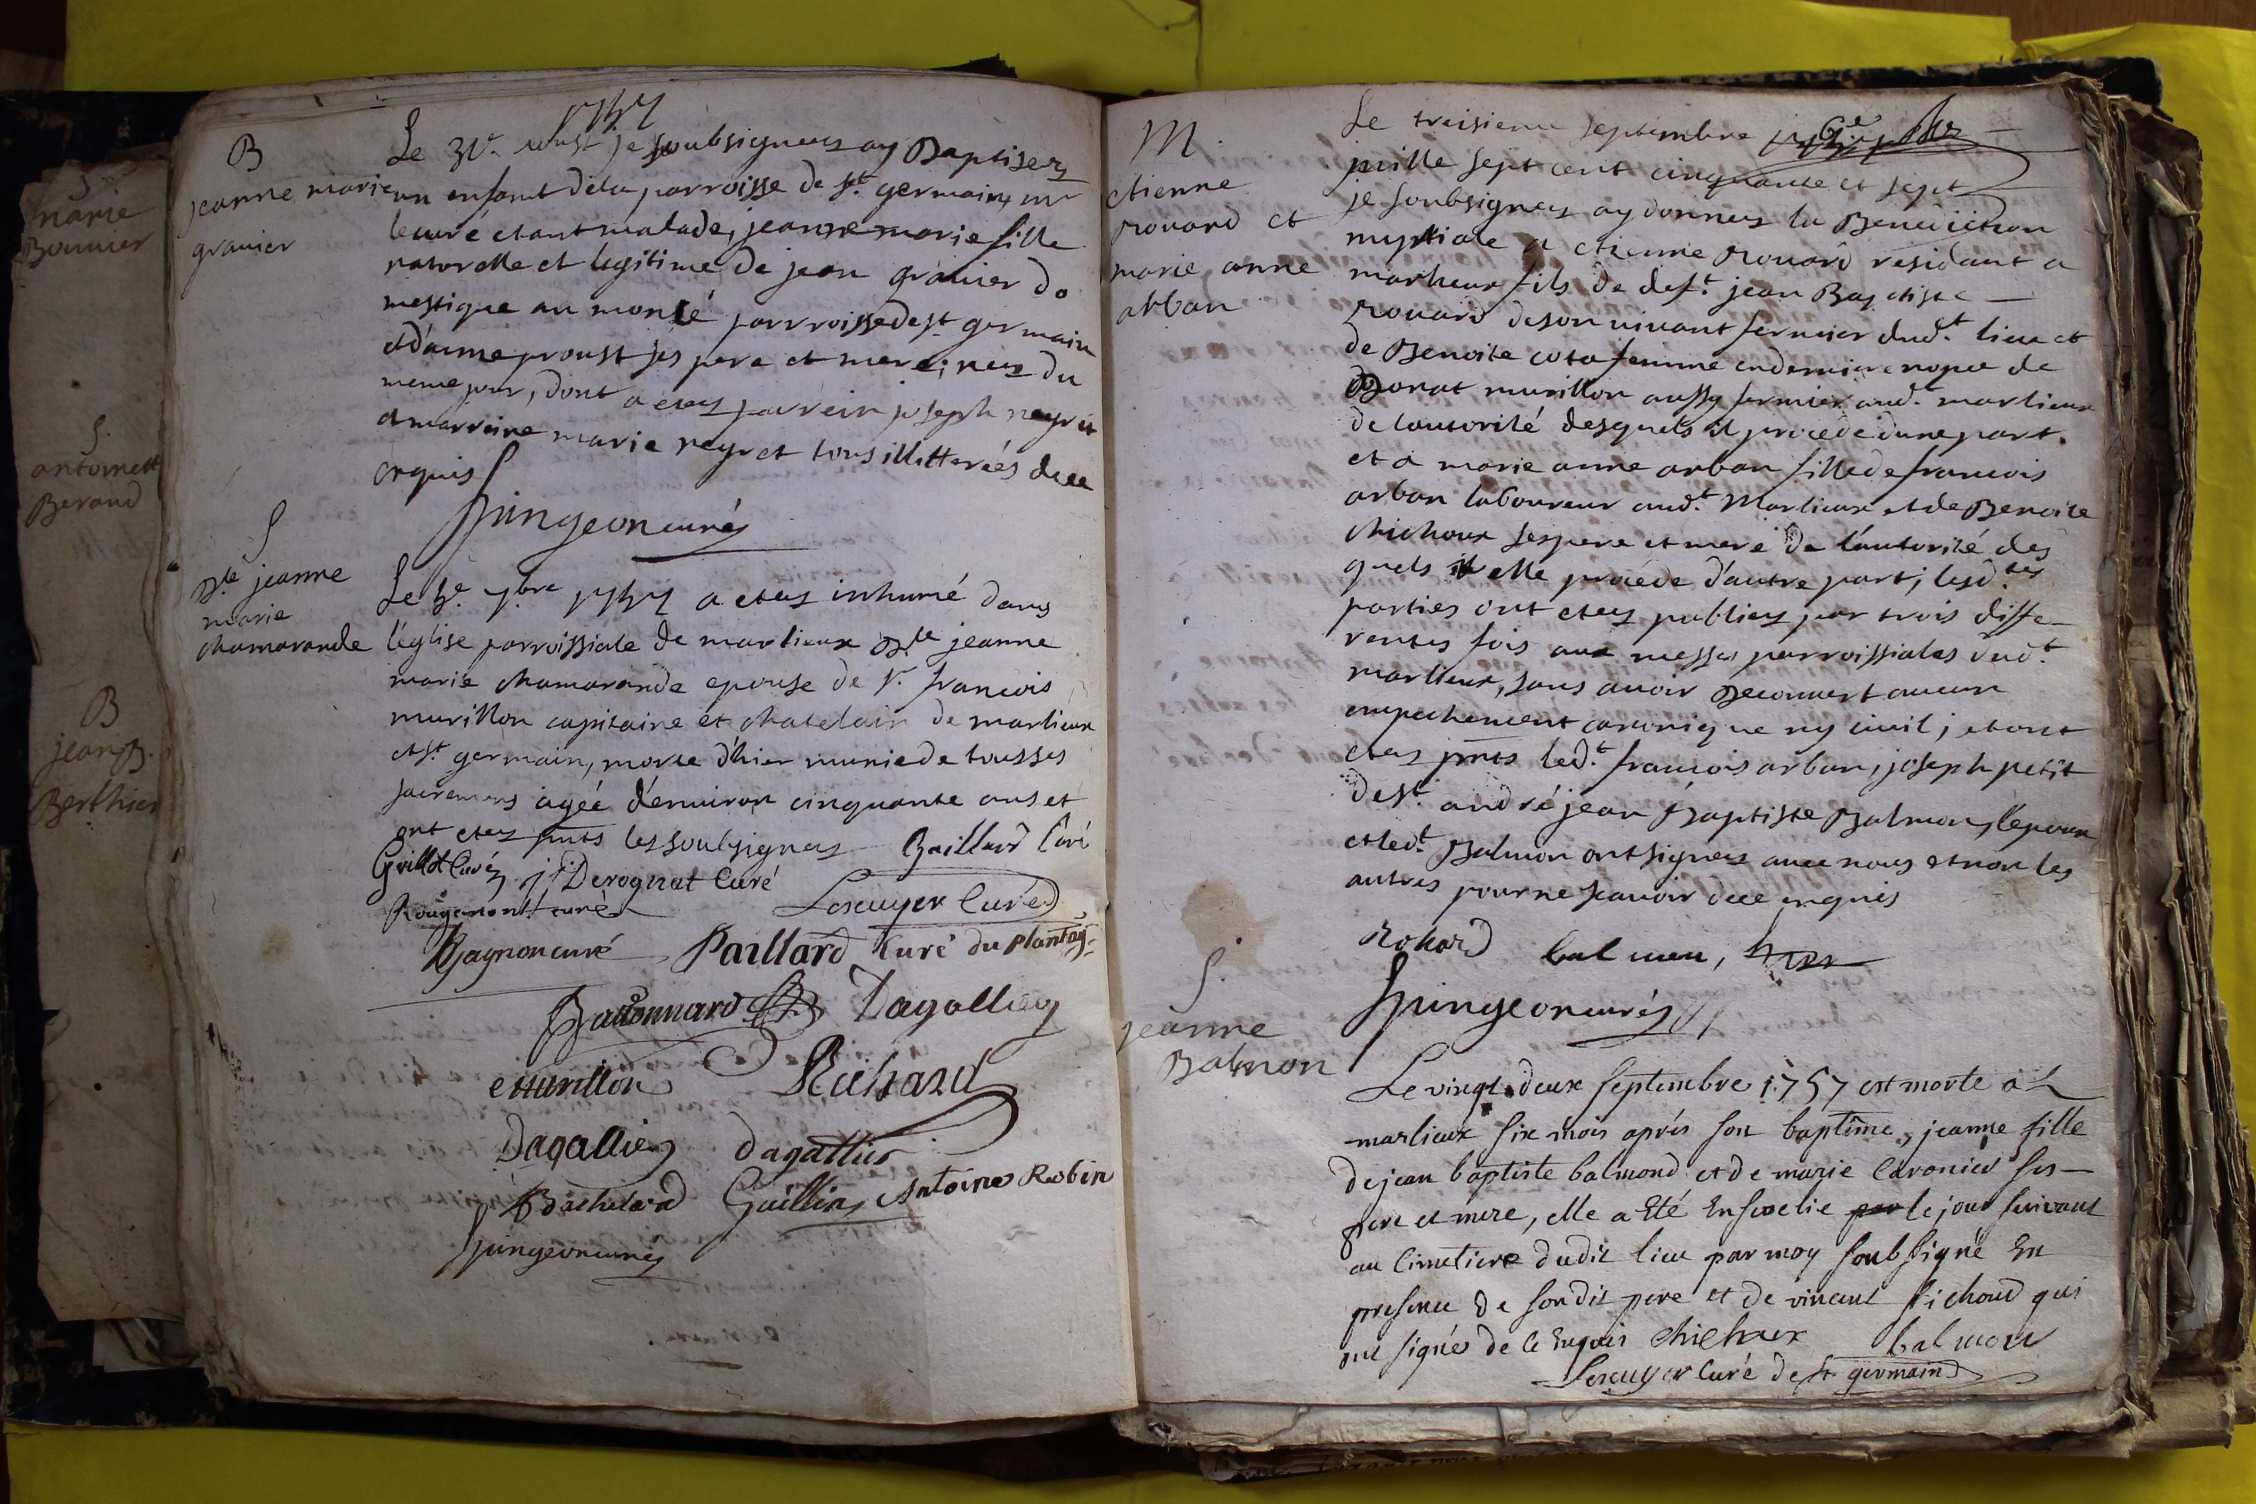 S
marie
Bonnier
S.
antoinett
Beraud
B
jean B.
Berthier
B
jeanne marie
granier
1757
Le 31e. aoust je soubsignez ay Baptisez
un enfant dela parroisse de st. germain, mr
lecuré etant malade, jeanne marie fille
naturelle et legitime de jean granier do
mestique au monté parroisse de st germain
et d'anne proust ses pere et mere; nez du
meme jour, dont a etez parrein joseph neyret
et marreine marie neyret tous illitterées de ce
enquis
Spingeon curéz
S
Dle jeanne
marie
chamarande
Le 5e. 7bre 1757 a etez inhumé dans
l'église parroissiale de marlieux Dle jeanne
marie chamarande epouse de sr. francois
murillon capitaine et chatelain de marlieux
et st. germain, morte d'hier munie de tousses
sacremens agée d'environ cinquante ans et
ont etez pnts les soubsignez Gaillard Curé
Guillot Curéz j. Derognat Curé
Rougemont curé Lescuyer Curé
Gagnon curé Paillard Curé du plantay
Dagallier
Murillon Richard
Dagallier dagallier
Bachelard Guillin Antoine Robin
Spingeon curéz
M.
etienne
rouard et
marie anne
arban
Le troisieme septembre
mille sept cent cinquante et sept
je soubsignez ay donnez la Benediction
nuptiale a etienne rouard residant a
marlieux fils de deft. jean Baptiste
rouard deson vivant fermier dudt. lieu et
de Benoite cota femme en derniere nopce de
Donat murillon aussy fermier aud. marlieux
de lautorité desquels il procede dune part.
et a marie anne arban fille de francois
arban laboureur audt. Marlieux et de Benoite
chichoux ses pere et mere de l'autorité des
quels il elle procéde d'autre part; lesdtes
parties ont etez publiez par trois diffe-
rentes fois aux messes parroissiales dudt.
marlieux, sans avoir decouvert aucun
empechement canonique ny civil; et ont
etez pnts ledt. francois arban, joseph petit
de st. andré jean Baptiste Balmon, lepoux
et ledt Balmon ont signez avec nous et non les
autres pour ne scavoir de ce enquis
rohard balmon,
Spingeon curéz
S.
jeanne
Balmon
Le vingt deux septembre 1757 est morte a
marlieux six mois aprés son baptême, jeanne fille
de jean baptiste balmond et de marie Caronier ses
pere et mere, elle a Eté Ensevelie par le jour suivant
au Cimetiere dudit lieu par moy soubsigné En
presence de son dit pere et de vincent sichoud qui
ont signés de Ce Enquis chichoux balmon
Lescuyer Curé de st. germain